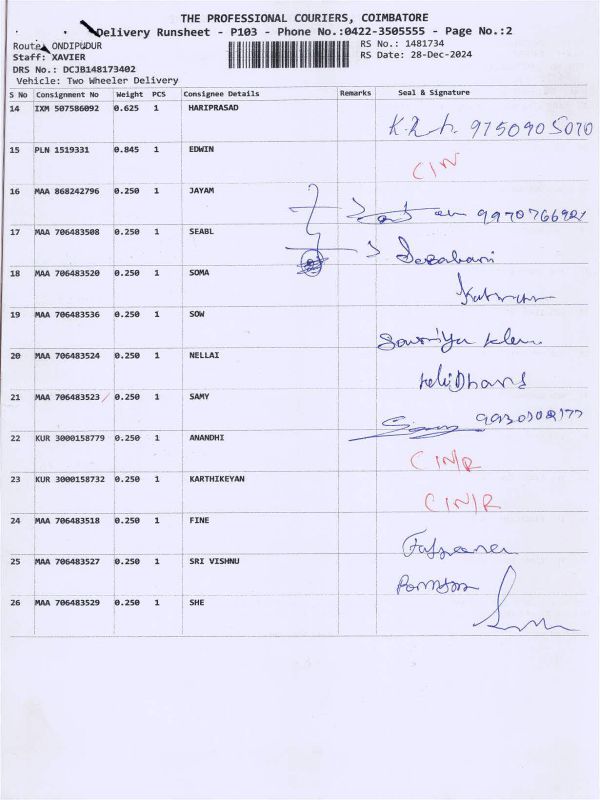 THE PROFESSIONAL COURIERS, COIMBATORE
Delivery Runsheet - P103 - Phone No.:0422-3505555 - Page No.:2
Route: ONDIPUDUR RS No.: 1481734
Staff: XAVIER RS Date: 28-Dec-2024
DRS No.: DCJB148173402
Vehicle: Two Wheeler Delivery
S No Consignment No Weight PCS Consignee Details Remarks Seal & Signature
14 IXM 507586092 0.625 1 HARIPRASAD
9750905070
15 PLN 1519331 0.845 1 EDWIN
CIN
16 MAA 868242796 0.250 1 JAYAM
17 MAA 706483508 0.250 1 SEABL
18 MAA 706483520 0.250 1 SOMA
19 MAA 706483536 0.250 1 SOW
20 MAA 706483524 0.250 1 NELLAI
21 MAA 706483523 0.250 1 SAMY
22 KUR 3000158779 0.250 1 ANANDHI
CN/R
23 KUR 3000158732 0.250 1 KARTHIKEYAN
CN/R
24 MAA 706483518 0.250 1 FINE
25 MAA 706483527 0.250 1 SRI VISHNU
26 MAA 706483529 0.250 1 SHE